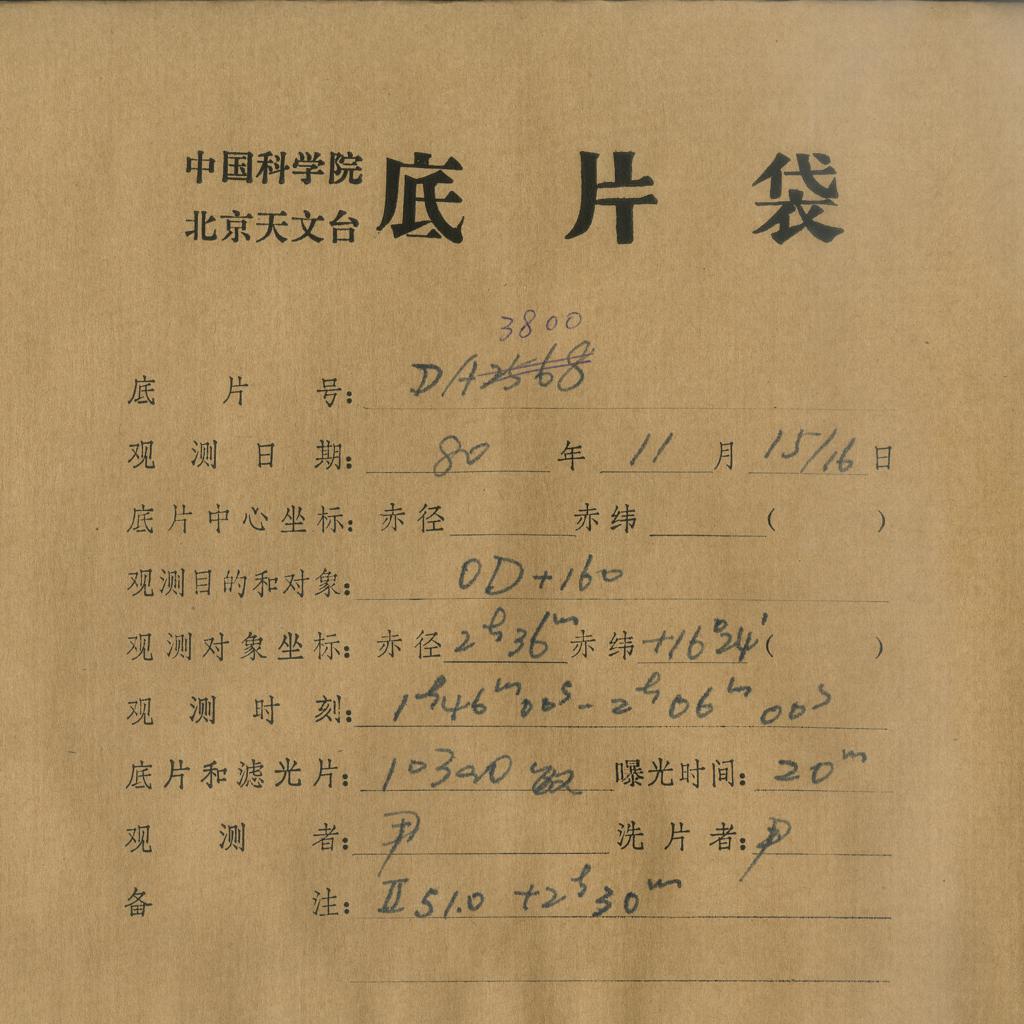 中国科学院
北京天文台
底片袋
3800
底片号: DA2568
观测日期: 80 年 11 月 15/16 日
底片中心坐标: 赤径 赤纬 ( )
观测目的和对象: OD+160
观测对象坐标: 赤径 2h36m 赤纬 +16°24′ ( )
观测时刻: 1h46m00s - 2h06m00s
底片和滤光片: 103aO 曝光时间: 20m
观测者: 尹 洗片者: 尹
备注: II 51.0 +2h30m